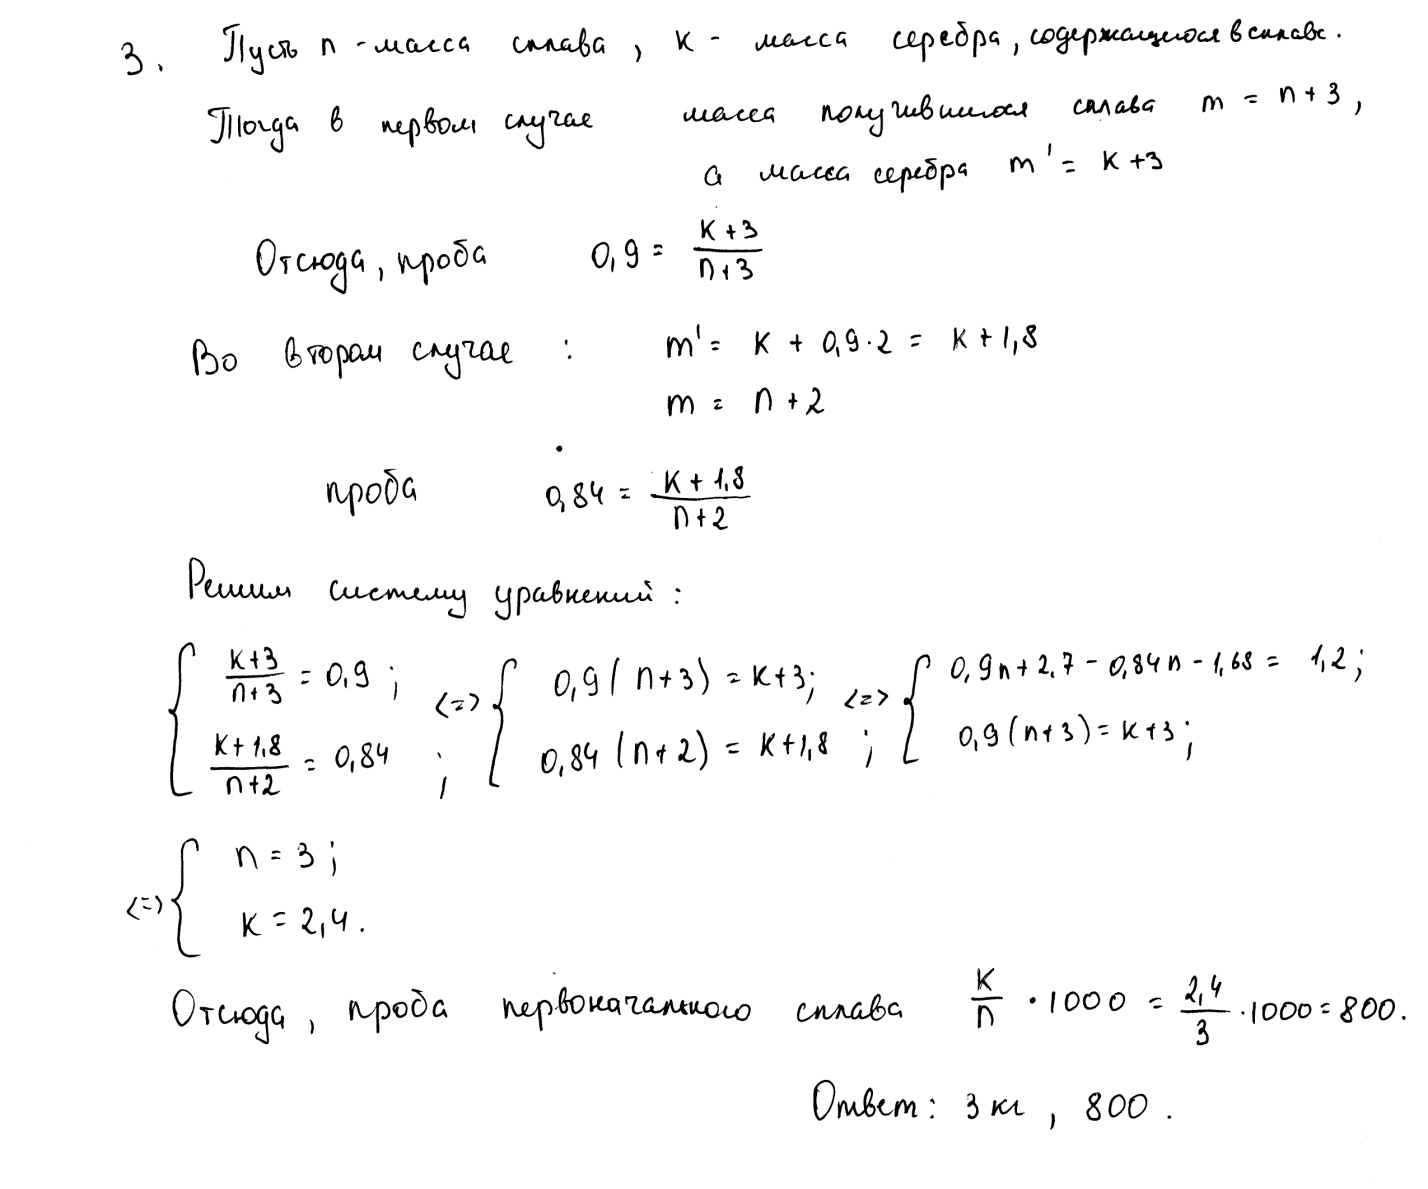 3. Пусть n - масса сплава, к - масса серебра, содержащегося в сплаве.
Тогда в первом случае масса получившегося сплава m = n+3,
а масса серебра m' = к+3
Отсюда, проба 0,9 = (к+3)/(n+3)
Во втором случае : m' = к + 0,9·2 = к+1,8
m = n+2
проба 0,84 = (к+1,8)/(n+2)
Решим систему уравнений:
{ (к+3)/(n+3) = 0,9; (к+1,8)/(n+2) = 0,84; <=> { 0,9(n+3) = к+3; 0,84(n+2) = к+1,8; <=> { 0,9n+2,7-0,84n-1,68 = 1,2; 0,9(n+3) = к+3;
<=> { n = 3; к = 2,4.
Отсюда, проба первоначального сплава к/n · 1000 = 2,4/3 · 1000 = 800.
Ответ: 3 кг, 800.